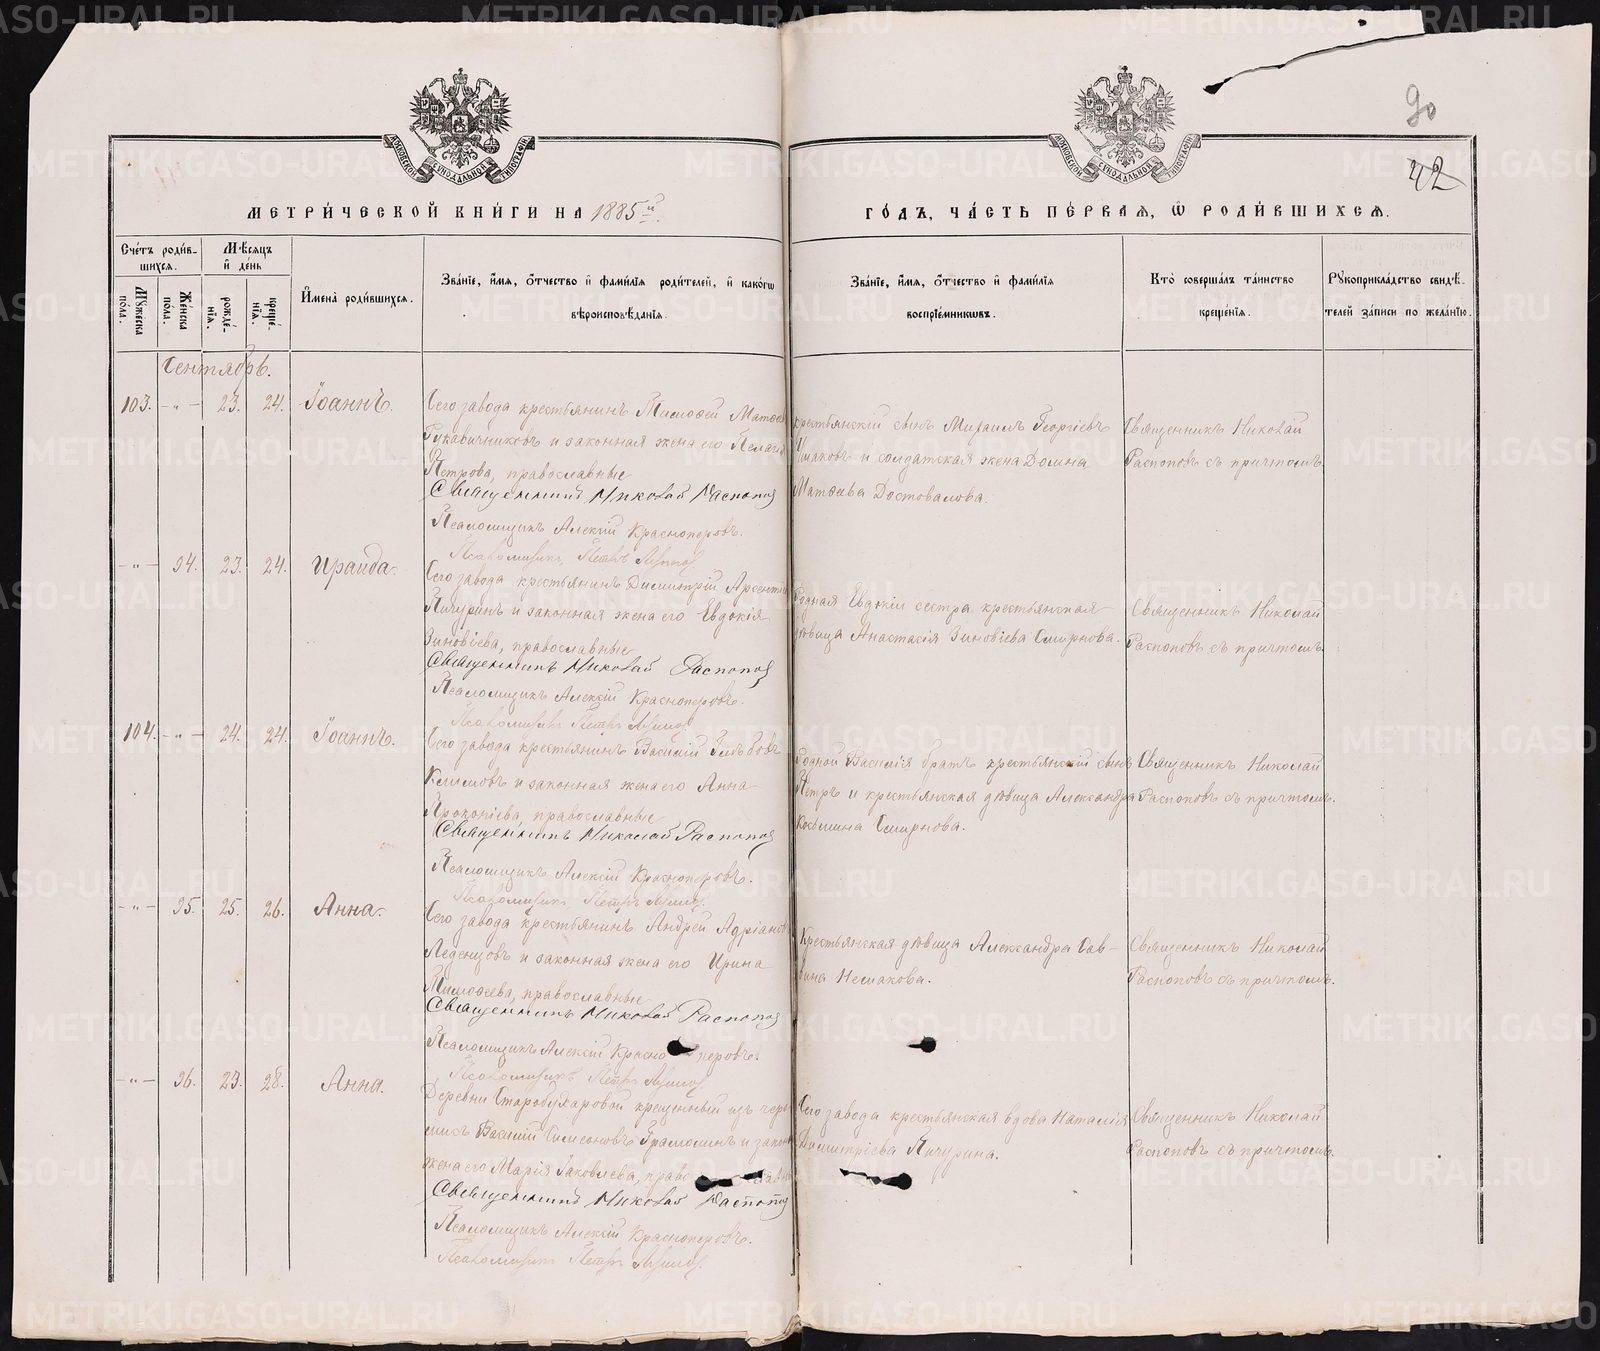 90
42
МЕТРИ́ЧЕСКОЙ КНИ́ГИ НА 1885й
ГО́ДЪ, ЧА́СТЬ ПЕ́РВАЯ, Ѿ РОДИ́ВШИХСЯ.
Сче́тъ роди́в-
шихся.
Мѣ́сяцъ
и де́нь
Му́жеска
по́ла.
Же́нска
по́ла.
рожде́-
нія.
креще́-
нія.
Имена̀ роди́вшихся.
Зва́ніе, и́мя, о́тчество и фами́лія роди́телей, и како́гѡ
вѣроисповѣ́данія.
Зва́ніе, и́мя, о́тчество и фами́лія
воспріе́мникѡвъ.
Кто̀ соверша́лъ та́инство
креще́нія.
Рукоприкла́дство свидѣ́-
телей за́писи по жела́нію.
Сентябрь.
103. - „ - 23. 24. Іоаннъ.
Сего завода крестьянинъ Тимоѳей Матѳеев
Рукавичниковъ и законная жена его Пелагія
Петрова, православные
Священникъ Николай Распопов
Псаломщикъ Алексій Красноперовъ.
Псаломщикъ Петръ
крестьянскій сынъ Михаилъ Георгіевъ
и солдатская жена Домна
Матѳеева Достовалова.
Священникъ Николай
Распоповъ съ причтомъ.
- „ - 94. 23. 24. Ираида.
Сего завода крестьянинъ Димитрій Арсентіев
Пичуринъ и законная жена его Евдокія
Зиновіева, православные
Священникъ Николай Распопов
Псаломщикъ Алексій Красноперовъ.
Псаломщикъ Петръ
Родная Евдокіи сестра крестьянская
дѣвица Анастасія Зиновіева Смирнова.
Священникъ Николай
Распоповъ съ причтомъ.
104. - „ - 24. 24. Іоаннъ.
Сего завода крестьянинъ Василій Глѣбовъ
Климовъ и законная жена его Анна
Прокопіева, православные
Священникъ Николай Распопов
Псаломщикъ Алексій Красноперовъ.
Псаломщикъ Петръ
Родной Василія братъ крестьянскій сынъ
Петръ и крестьянская дѣвица Александра
Косьмина Смирнова.
Священникъ Николай
Распоповъ съ причтомъ.
- „ - 95. 25. 26. Анна.
Сего завода крестьянинъ Андрей Адріанов
Леденцовъ и законная жена его Ирина
Тимоѳеева, православные
Священникъ Николай Распопов
Псаломщикъ Алексій Красноперовъ.
Псаломщикъ Петръ
Крестьянская дѣвица Александра Сав-
вина
Священникъ Николай
Распоповъ съ причтомъ.
- „ - 96. 23. 28. Анна.
Деревни Старобухаровой крещенный изъ чере
мисъ Василій Симеоновъ и закон
жена его Марія Іаковлева, православ
Священникъ Николай Распопов
Псаломщикъ Алексій Красноперовъ.
Псаломщикъ Петръ
Сего завода крестьянская вдова Наталія
Димитріева Пичурина.
Священникъ Николай
Распоповъ съ причтомъ.
METRIKI.GASO-URAL.RU